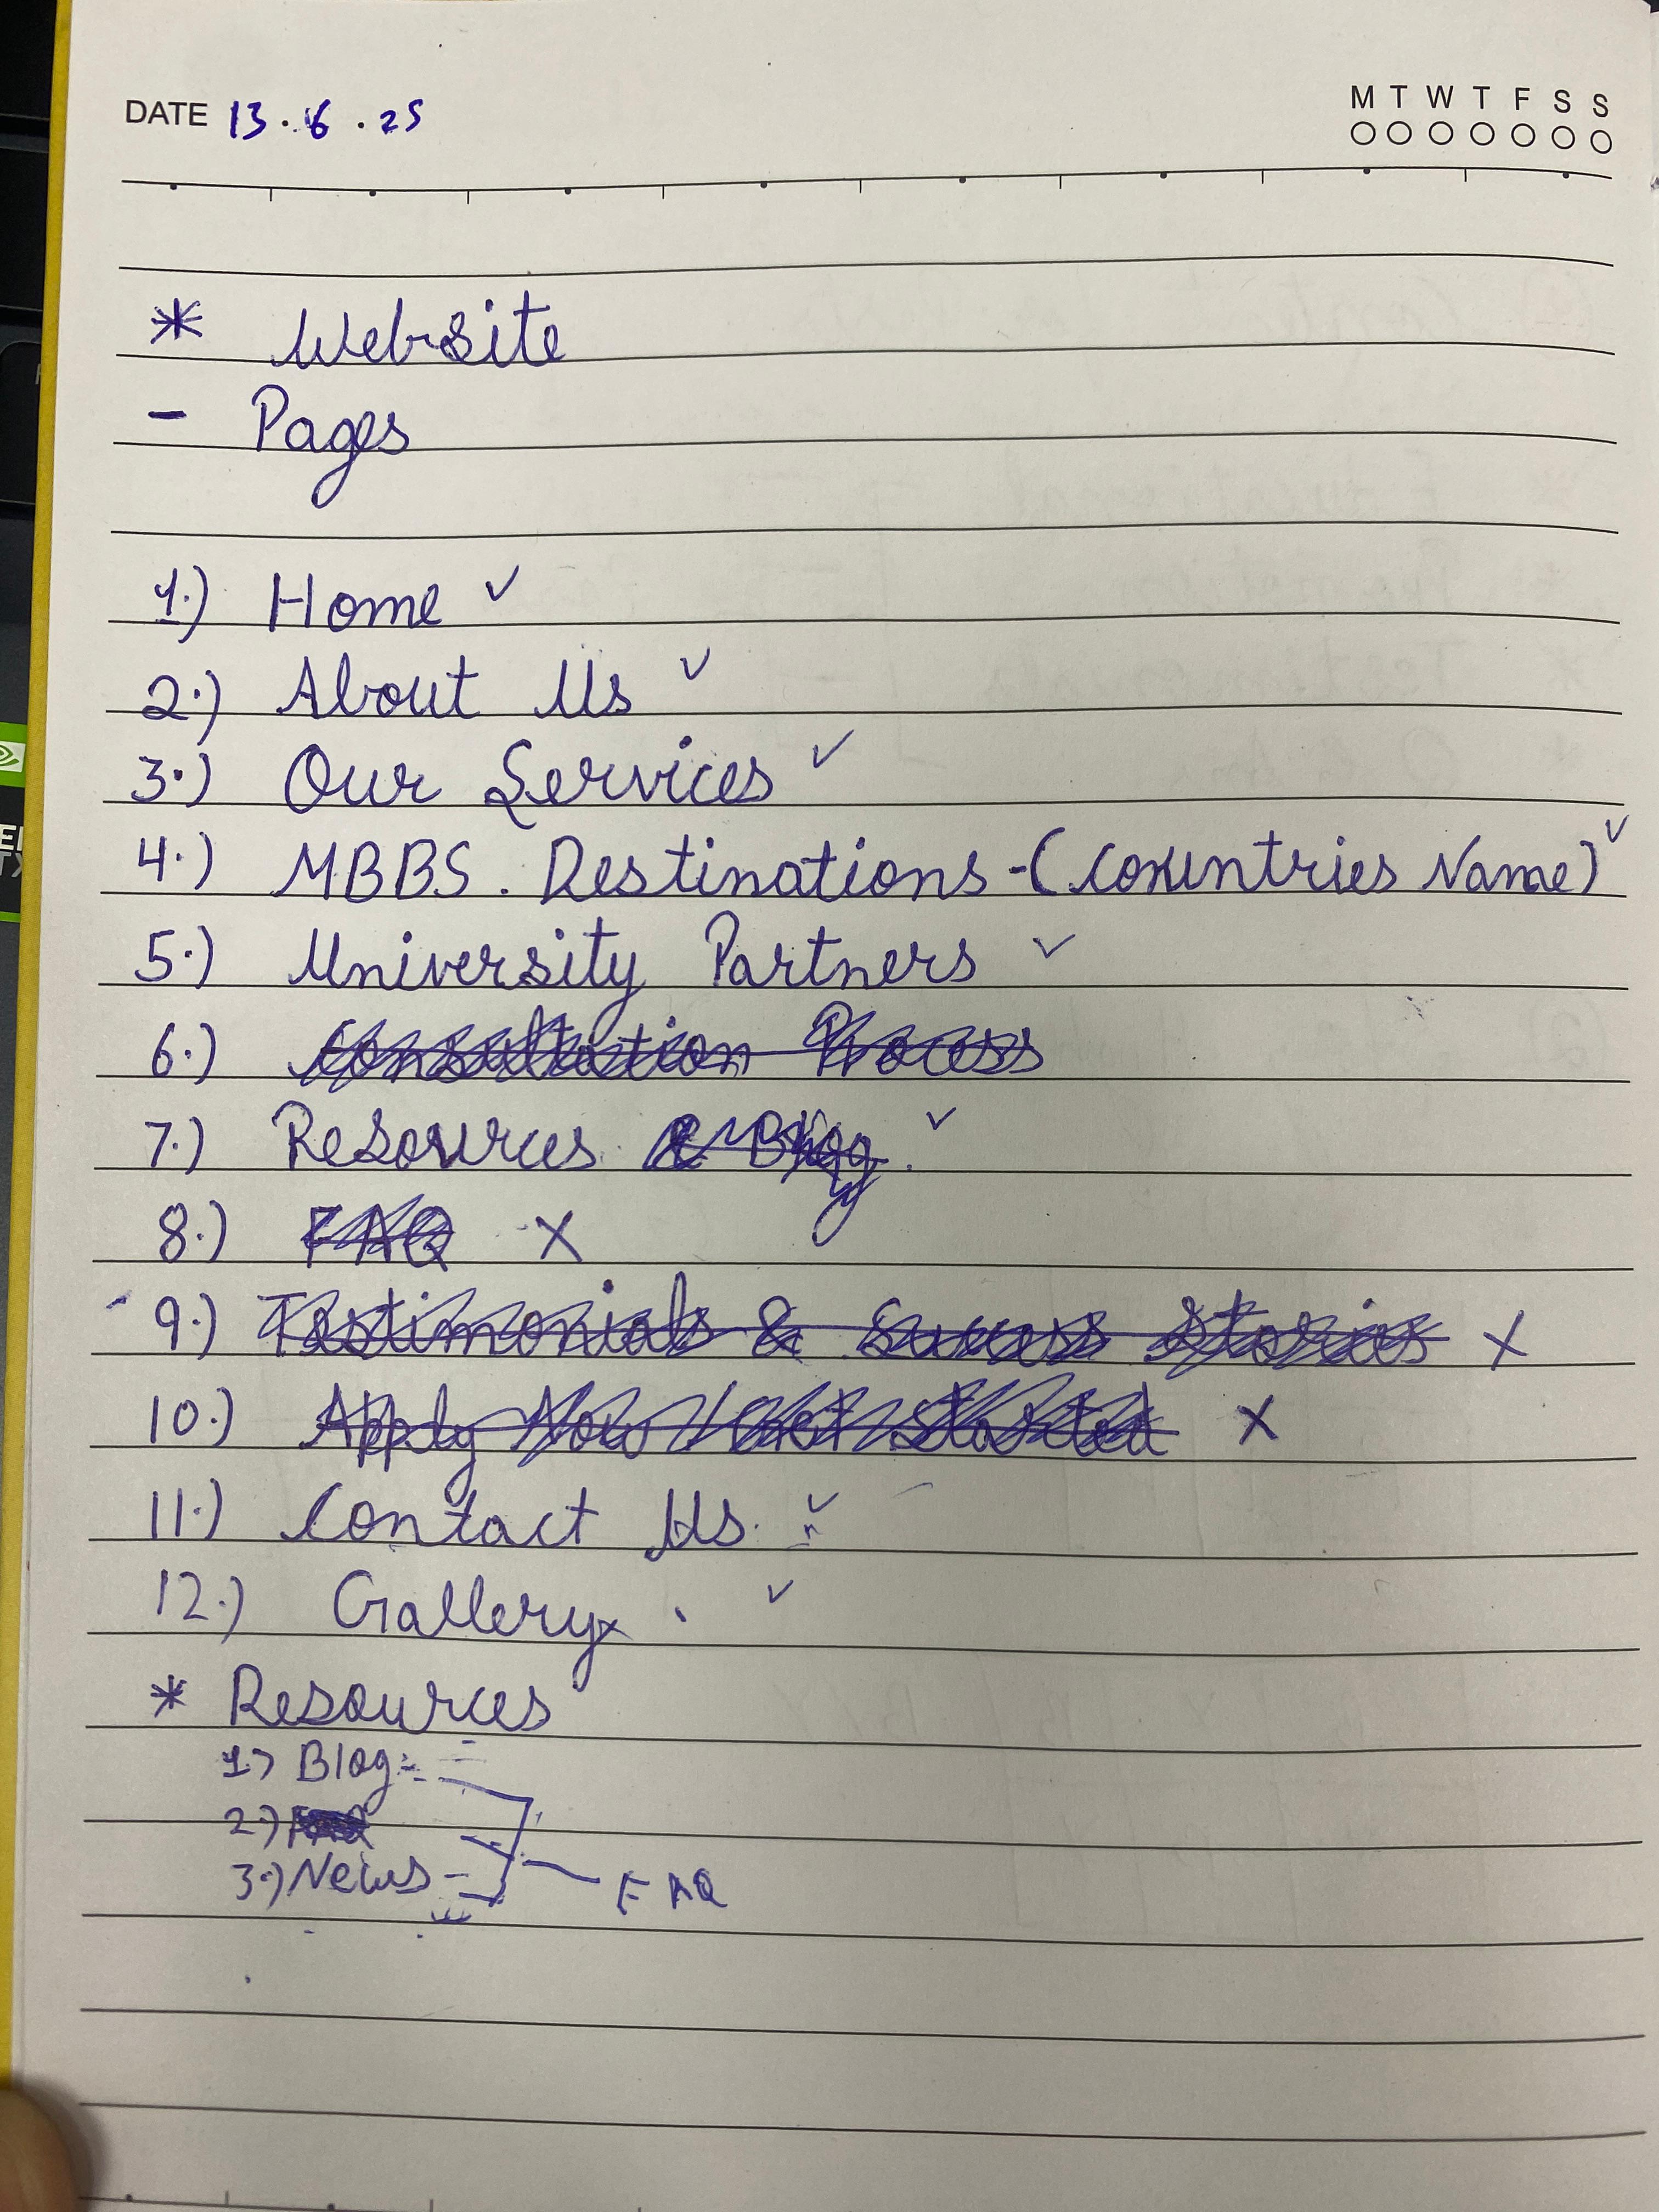 DATE 13.6.25
M T W T F S S
* Website
- Pages
1.) Home ✓
2.) About Us ✓
3.) Our Services ✓
4.) MBBS. Destinations -(Countries Name) ✓
5.) University Partners ✓
6.) Consultation Process
7.) Resources & Blog. ✓
8.) FAQ X
9.) Testimonials & Success Stories X
10.) Apply Now / Get Started X
11.) Contact Us. ✓
12.) Gallery ✓
* Resources
1) Blog
2.) FAQ
3.) News - FAQ